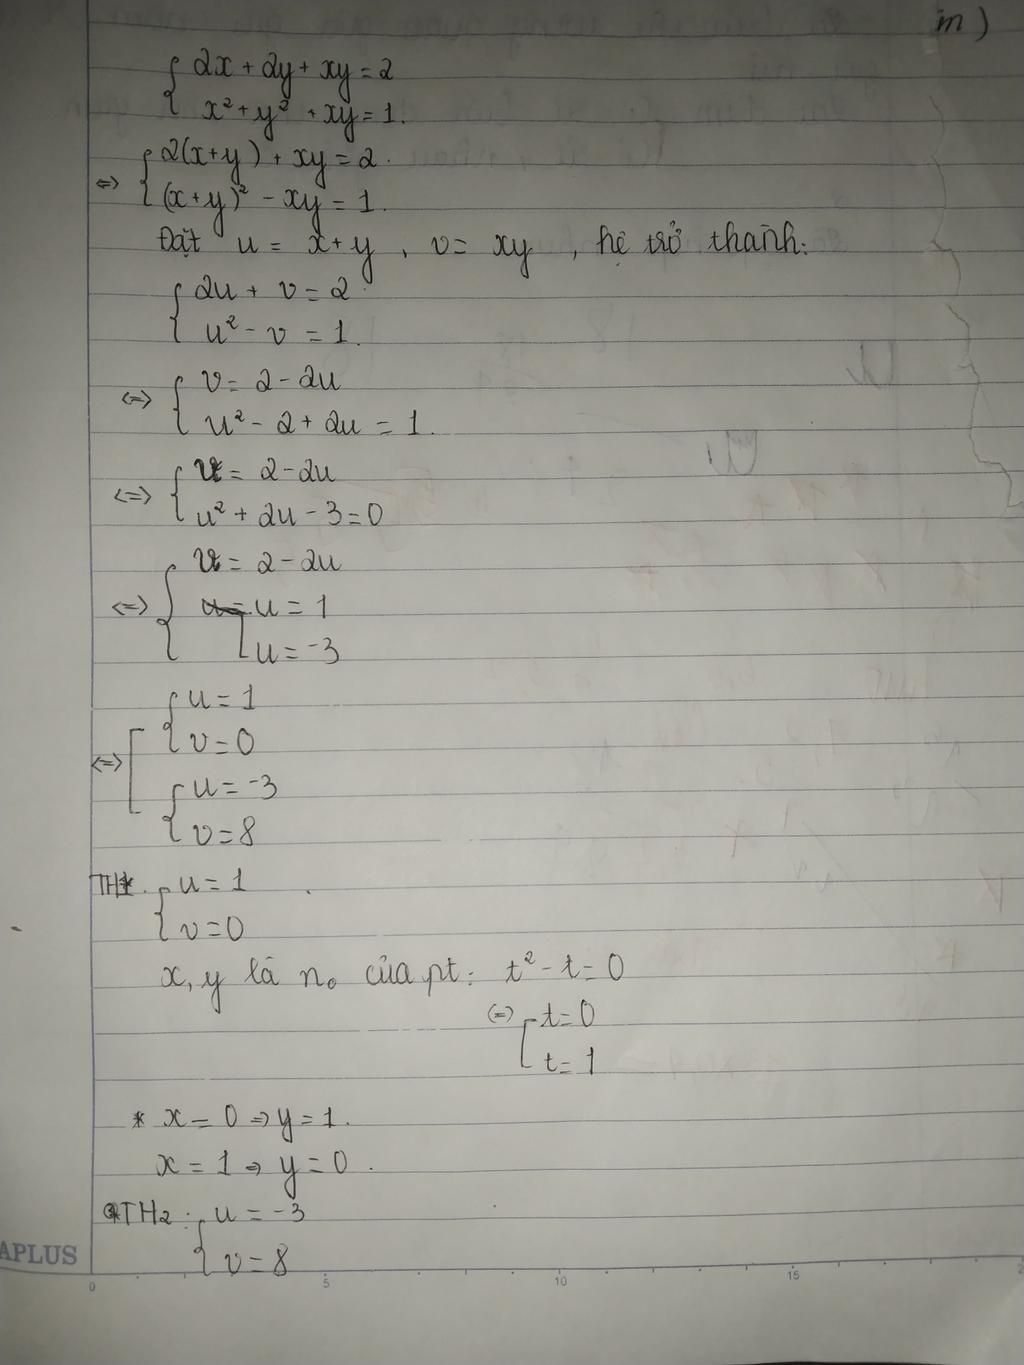 m)
{ 2x + 2y + xy = 2
x² + y² + xy = 1.
<=> { 2(x+y) + xy = 2.
(x+y)² - xy = 1.
Đặt u = x+y, v = xy, hệ trở thành:
{ 2u + v = 2
u² - v = 1.
<=> { v = 2-2u
u² - 2 + 2u = 1.
<=> { v = 2-2u
u² + 2u - 3 = 0
<=> { v = 2-2u
[ u = 1
u = -3
<=> [ { u = 1
v = 0
{ u = -3
v = 8
TH1. { u = 1
v = 0
x, y là n₀ của pt: t² - t = 0
<=> [ t = 0
t = 1
* x = 0 => y = 1.
x = 1 => y = 0.
TH2: { u = -3
v = 8
APLUS
0 5 10 15 2